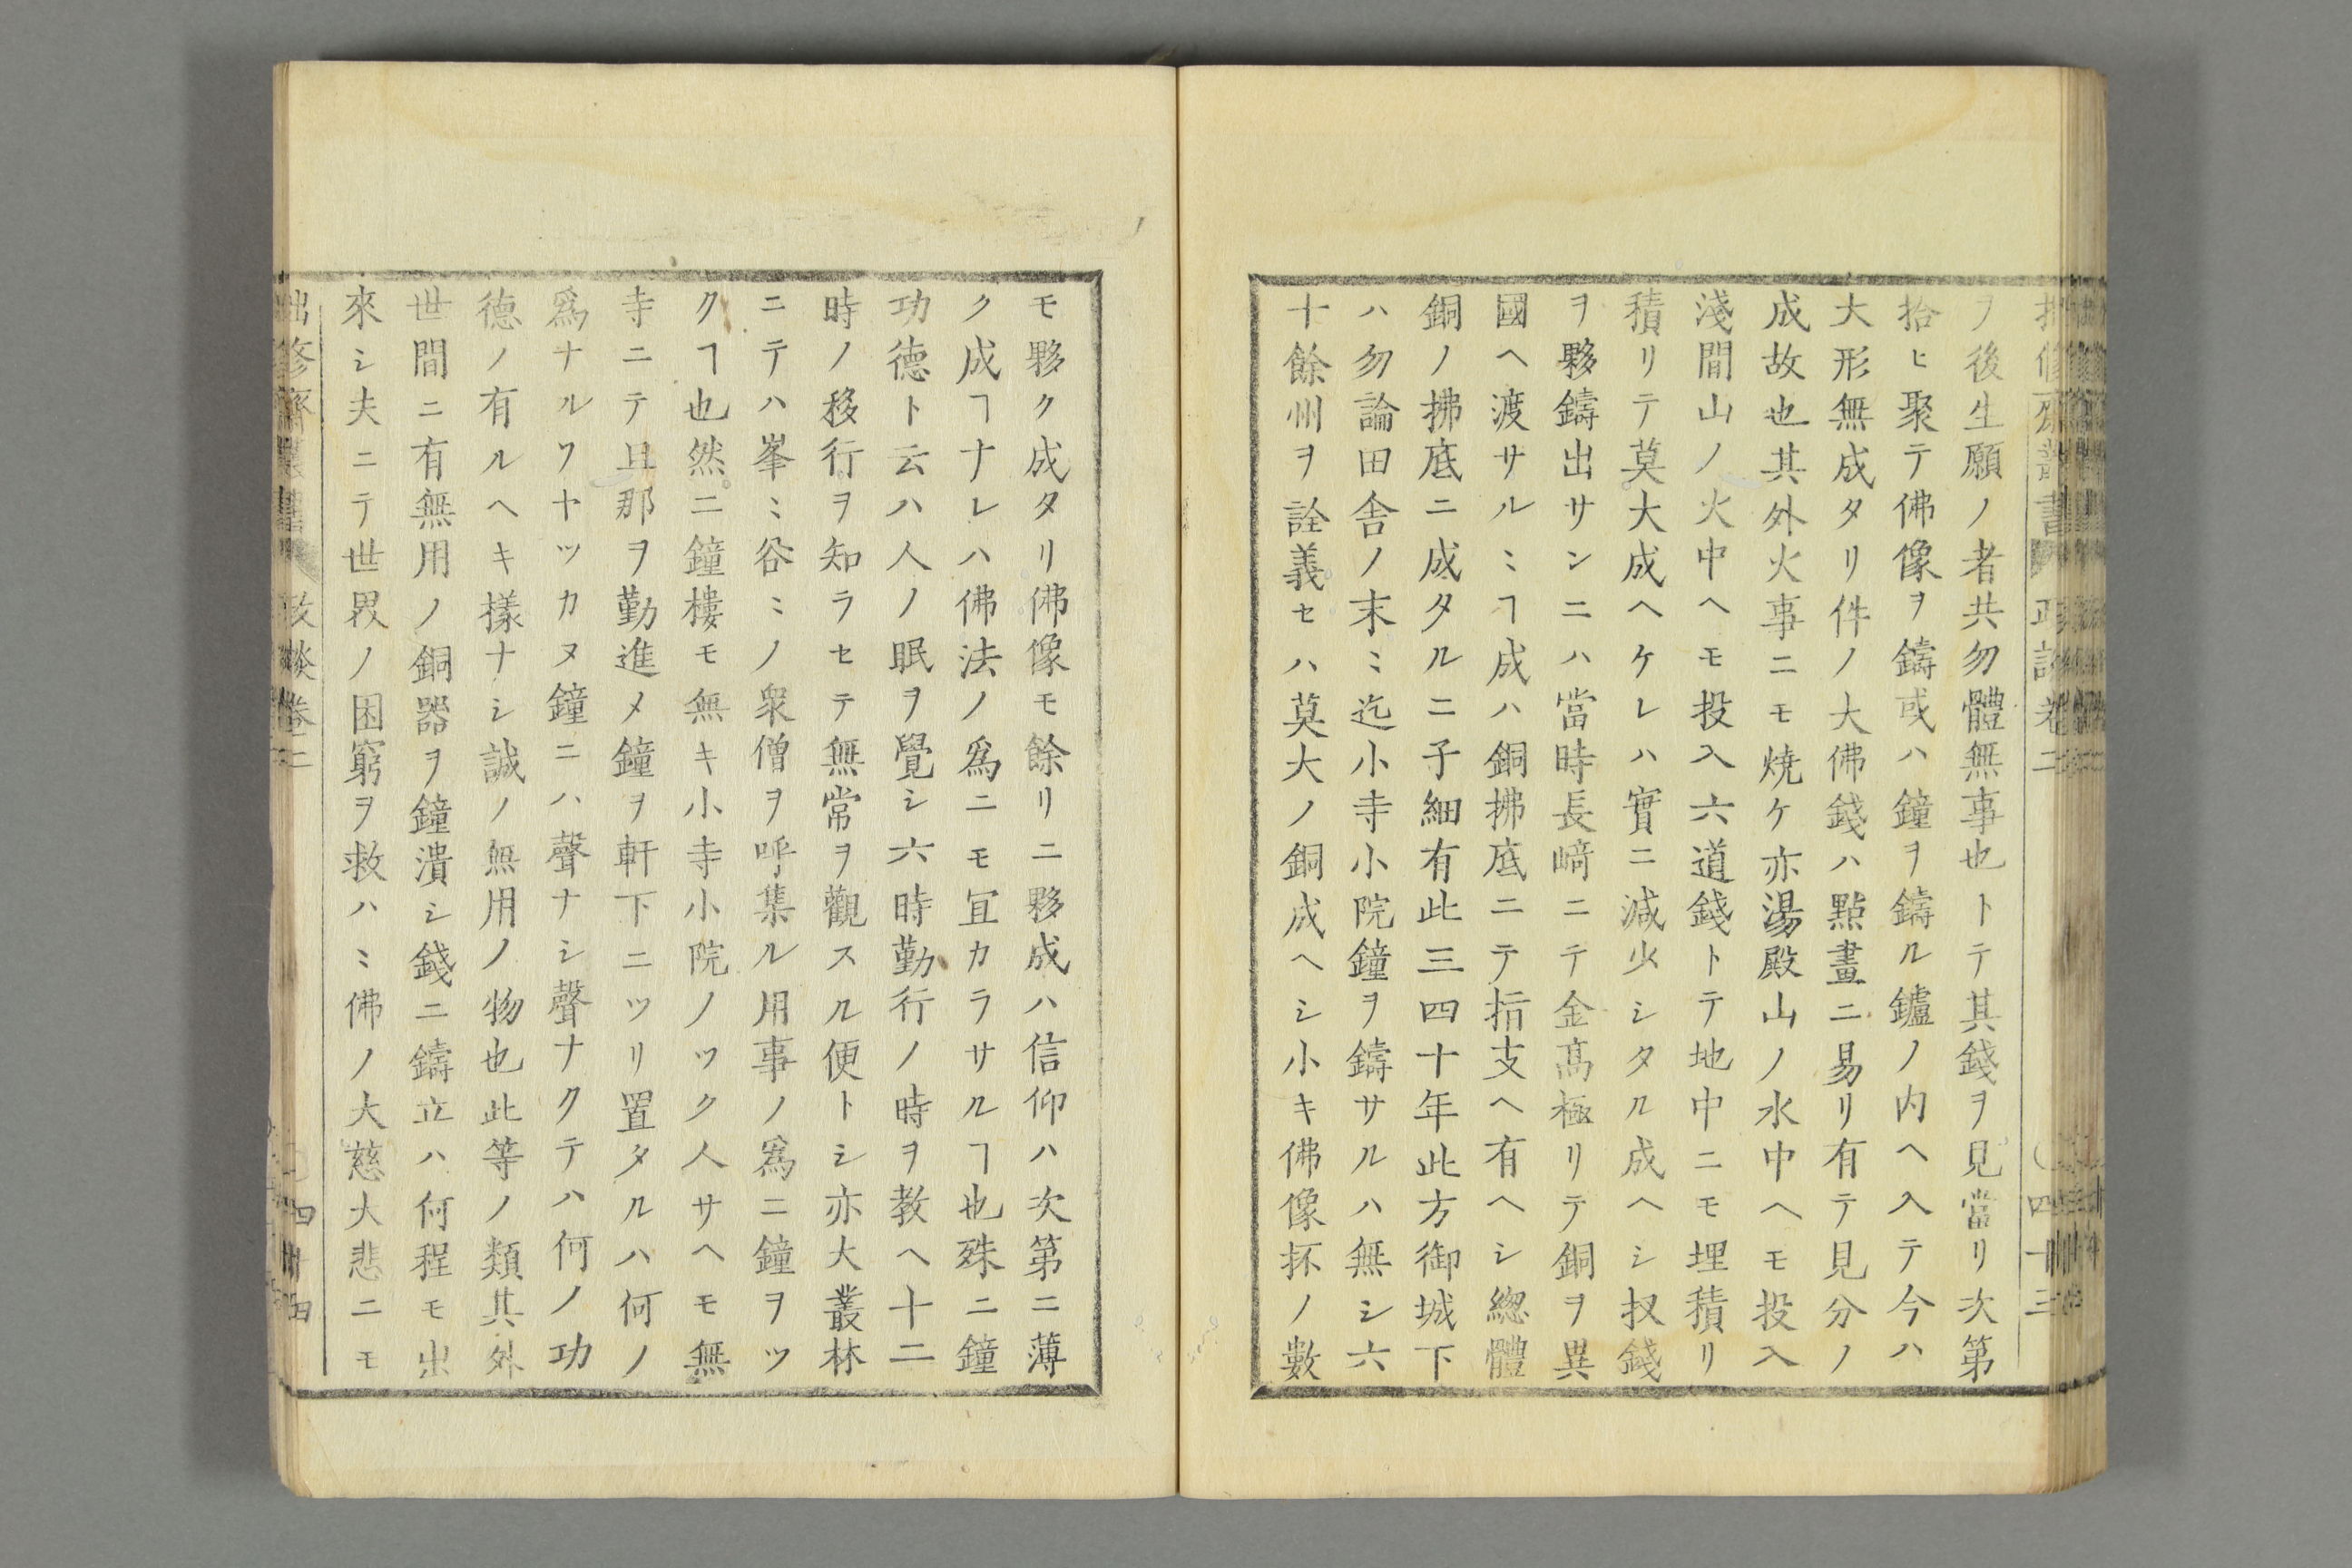 ヲ後生願ノ者共勿體無事也トテ其錢ヲ見當リ次第
拾ヒ聚テ佛像ヲ鑄或ハ鐘ヲ鑄ル鑪ノ内ヘ入テ今ハ
大形無成タリ件ノ大佛錢ハ點畫ニ易リ有テ見分ノ
成故也其外火事ニモ焼ケ亦湯殿山ノ水中ヘモ投入
淺間山ノ火中ヘモ投入六道錢トテ地中ニモ埋積リ
積リテ莫大成ヘケレハ實ニ減少シタル成ヘシ扠錢
ヲ夥鑄出サンニハ當時長﨑ニテ金髙極リテ銅ヲ異
國ヘ渡サルヽヿ成ハ銅拂底ニテ指支ヘ有ヘシ總體
銅ノ拂底ニ成タルニ子細有此三四十年此方御城下
ハ勿論田舎ノ末ヽ迄小寺小院鐘ヲ鑄サルハ無シ六
十餘州ヲ詮義セハ莫大ノ銅成ヘシ小キ佛像抔ノ數
モ夥ク成タリ佛像モ餘リニ夥成ハ信仰ハ次第ニ薄
ク成ヿナレハ佛法ノ爲ニモ冝カラサルヿ也殊ニ鐘
功德ト云ハ人ノ眠ヲ覺シ六時勤行ノ時ヲ教ヘ十二
時ノ移行ヲ知ラセテ無常ヲ觀スル便トシ亦大叢林
ニテハ峯ヽ谷ヽノ衆僧ヲ呼集ル用事ノ爲ニ鐘ヲツ
クヿ也然ニ鐘樓モ無キ小寺小院ノツク人サヘモ無
寺ニテ旦那ヲ勸進メ鐘ヲ軒下ニツリ置タルハ何ノ
爲ナルワヤツカヌ鐘ニハ聲ナシ聲ナクテハ何ノ功
德ノ有ルヘキ樣ナシ誠ノ無用ノ物也此等ノ類其外
世間ニ有無用ノ銅器ヲ鐘潰シ錢ニ鑄立ハ何程モ出
來シ夫ニテ世界ノ困窮ヲ救ハヽ佛ノ大慈大悲ニモ